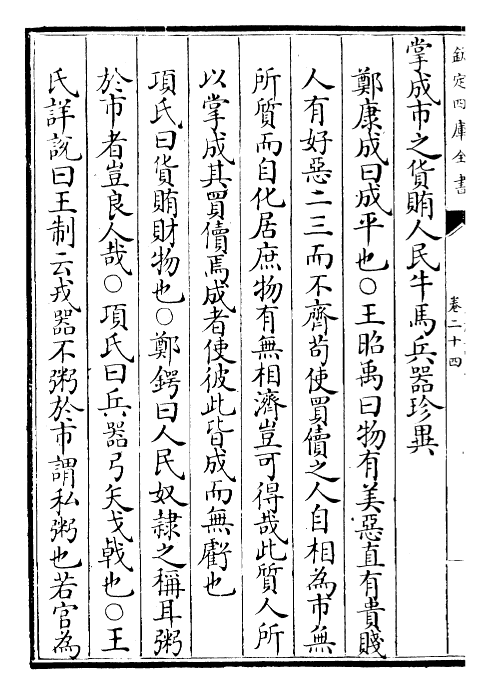 欽定四庫全書
卷二十四
掌成市之貨賄人民牛馬兵器珍異
鄭康成曰成平也○王昭禹曰物有美惡直有貴賤
人有好惡二三而不齊茍使買儥之人自相為市無
所質而自化居庶物有無相濟豈可得哉此質人所
以掌成其買儥焉成者使彼此皆成而無虧也
項氏曰貨賄財物也○鄭鍔曰人民奴隷之稱耳粥
於市者豈良人哉○項氏曰兵器弓矢戈㦸也○王
氏詳說曰王制云戎器不粥於市謂私粥也若官為